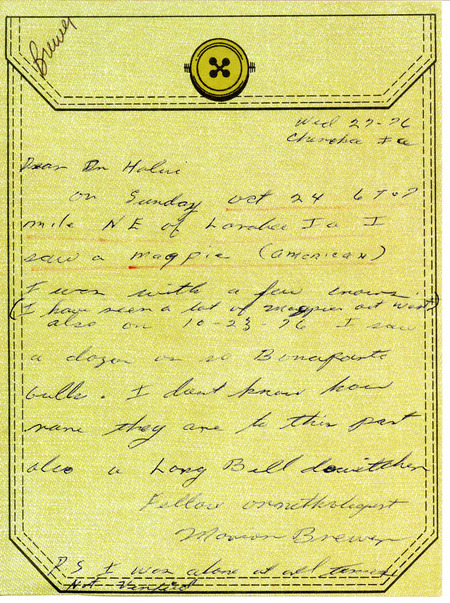 Brewer
Wed 27-76
Cherokee Ia
Dear Dr Halmi
on Sunday oct 24 6 to 7
mile NE of Larabee Ia I
saw a magpie (american)
I was with a few crows
(I have seen a lot of magpies out West)
also on 10-23-76 I saw
a dozen or so Bonaparte
gulls. I dont know how
rare they are to this part
also a Long Bill dowitcher
Fellow ornithologist
Marion Brewer
P.S I was alone at all times
Not Verified